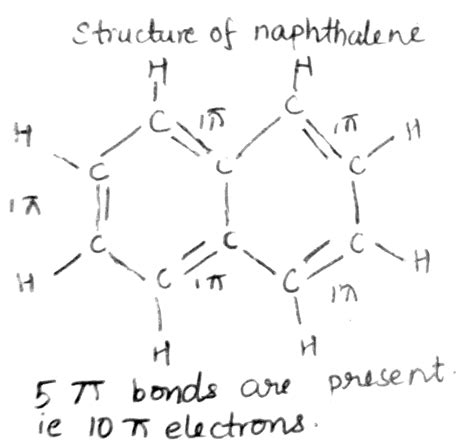 Structure of naphthalene
H H
C 1π C 1π H
H C C C
1π
C C C
H C 1π C 1π H
H H
5 π bonds are present.
ie 10 π electrons.